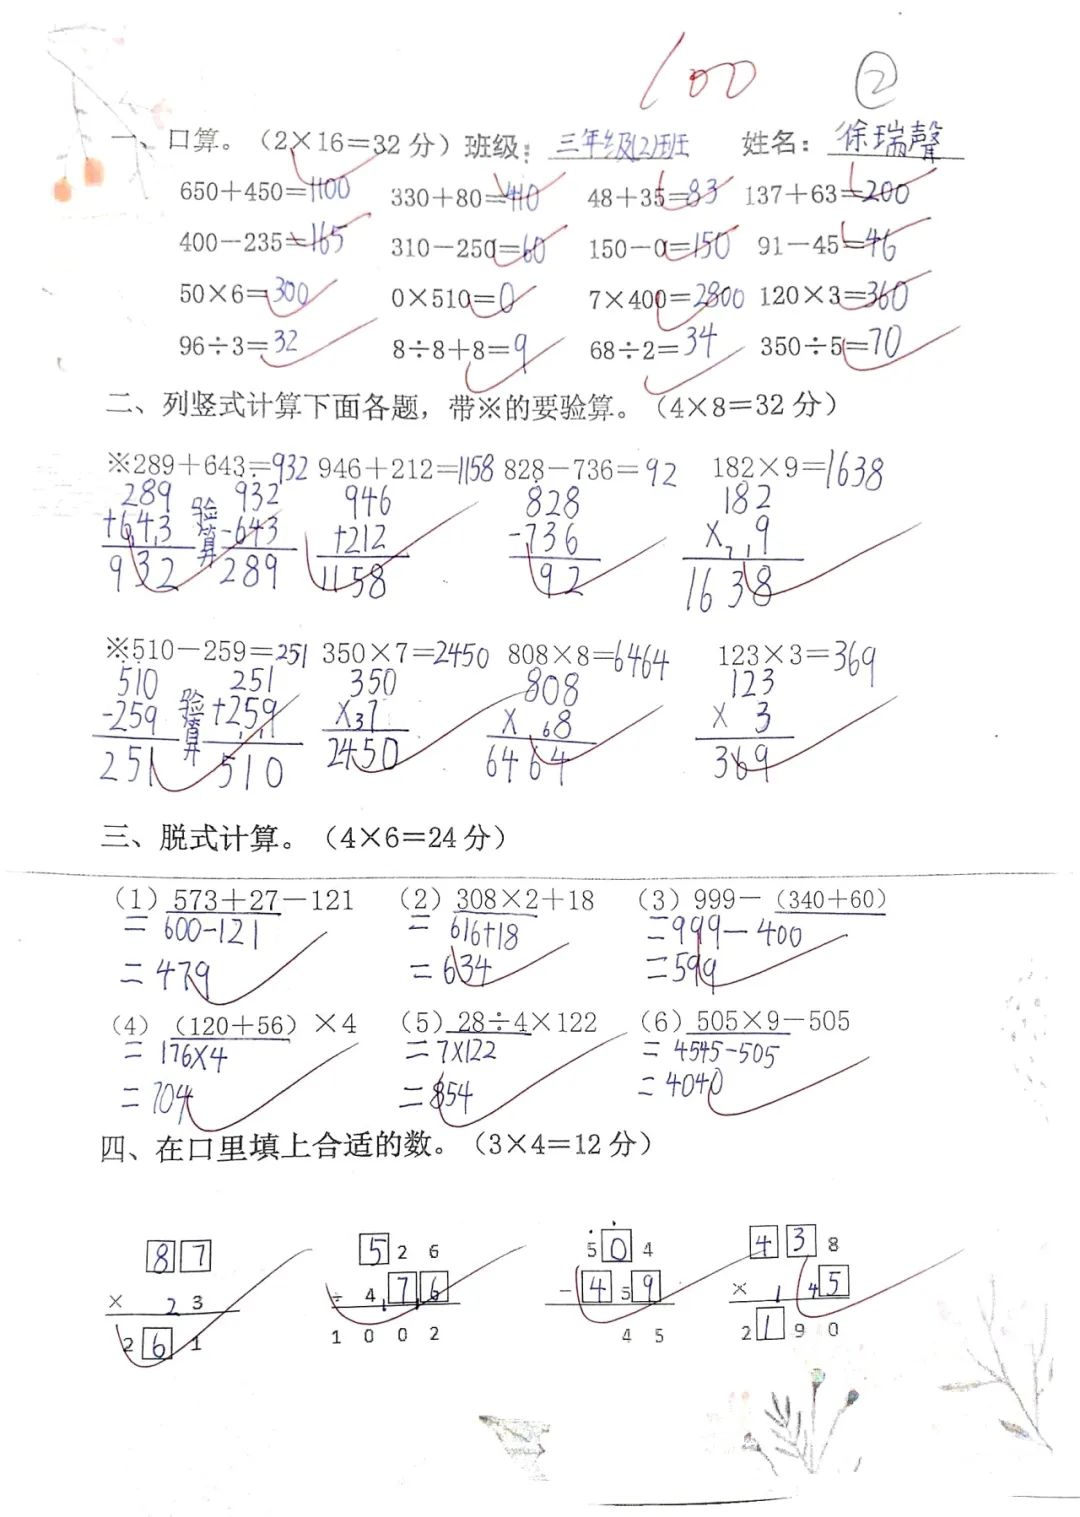 100 ②
一、口算。(2×16=32分) 班级: 三年级(2)班 姓名: 徐瑞聲
650+450=1100 330+80=410 48+35=83 137+63=200
400-235=165 310-250=60 150-0=150 91-45=46
50×6=300 0×510=0 7×400=2800 120×3=360
96÷3=32 8÷8+8=9 68÷2=34 350÷5=70
二、列竖式计算下面各题，带※的要验算。(4×8=32分)
※289+643=932 946+212=1158 828-736=92 182×9=1638
289 验算 932 946 828 182
+643 -643 +212 -736 ×719
932 289 1158 92 1638
※510-259=251 350×7=2450 808×8=6464 123×3=369
510 验算 251 350 808 123
-259 +259 ×37 ×68 × 3
251 510 2450 6464 369
三、脱式计算。(4×6=24分)
(1) 573+27-121 (2) 308×2+18 (3) 999-(340+60)
= 600-121 = 616+18 =999-400
= 479 = 634 =599
(4) (120+56)×4 (5) 28÷4×122 (6) 505×9-505
= 176×4 =7×122 = 4545-505
= 704 =854 = 4040
四、在口里填上合适的数。(3×4=12分)
87 526 504 438
× 23 ÷ 476 - 459 × 1 45
261 1002 45 2190